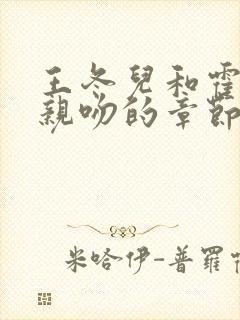 王冬兒和霍
親吻的章節
米哈伊-普羅